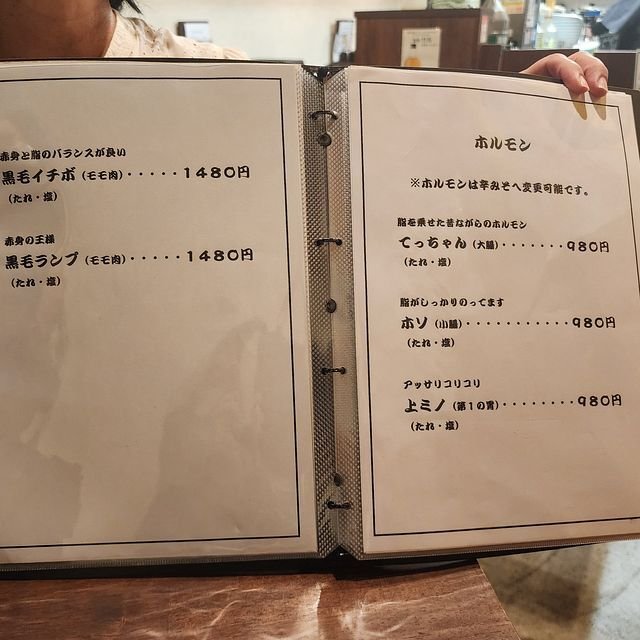 赤身と脂のバランスが良い
黒毛イチボ（モモ肉）・・・・・1480円
（たれ・塩）
赤身の王様
黒毛ランプ（モモ肉）・・・・・1480円
（たれ・塩）
ホルモン
※ホルモンは辛みそへ変更可能です。
脂を乗せた昔ながらのホルモン
てっちゃん（大腸）・・・・・・・980円
（たれ・塩）
脂がしっかりのってます
ホソ（小腸）・・・・・・・・・・・980円
（たれ・塩）
アッサリコリコリ
上ミノ（第１の胃）・・・・・・・・980円
（たれ・塩）